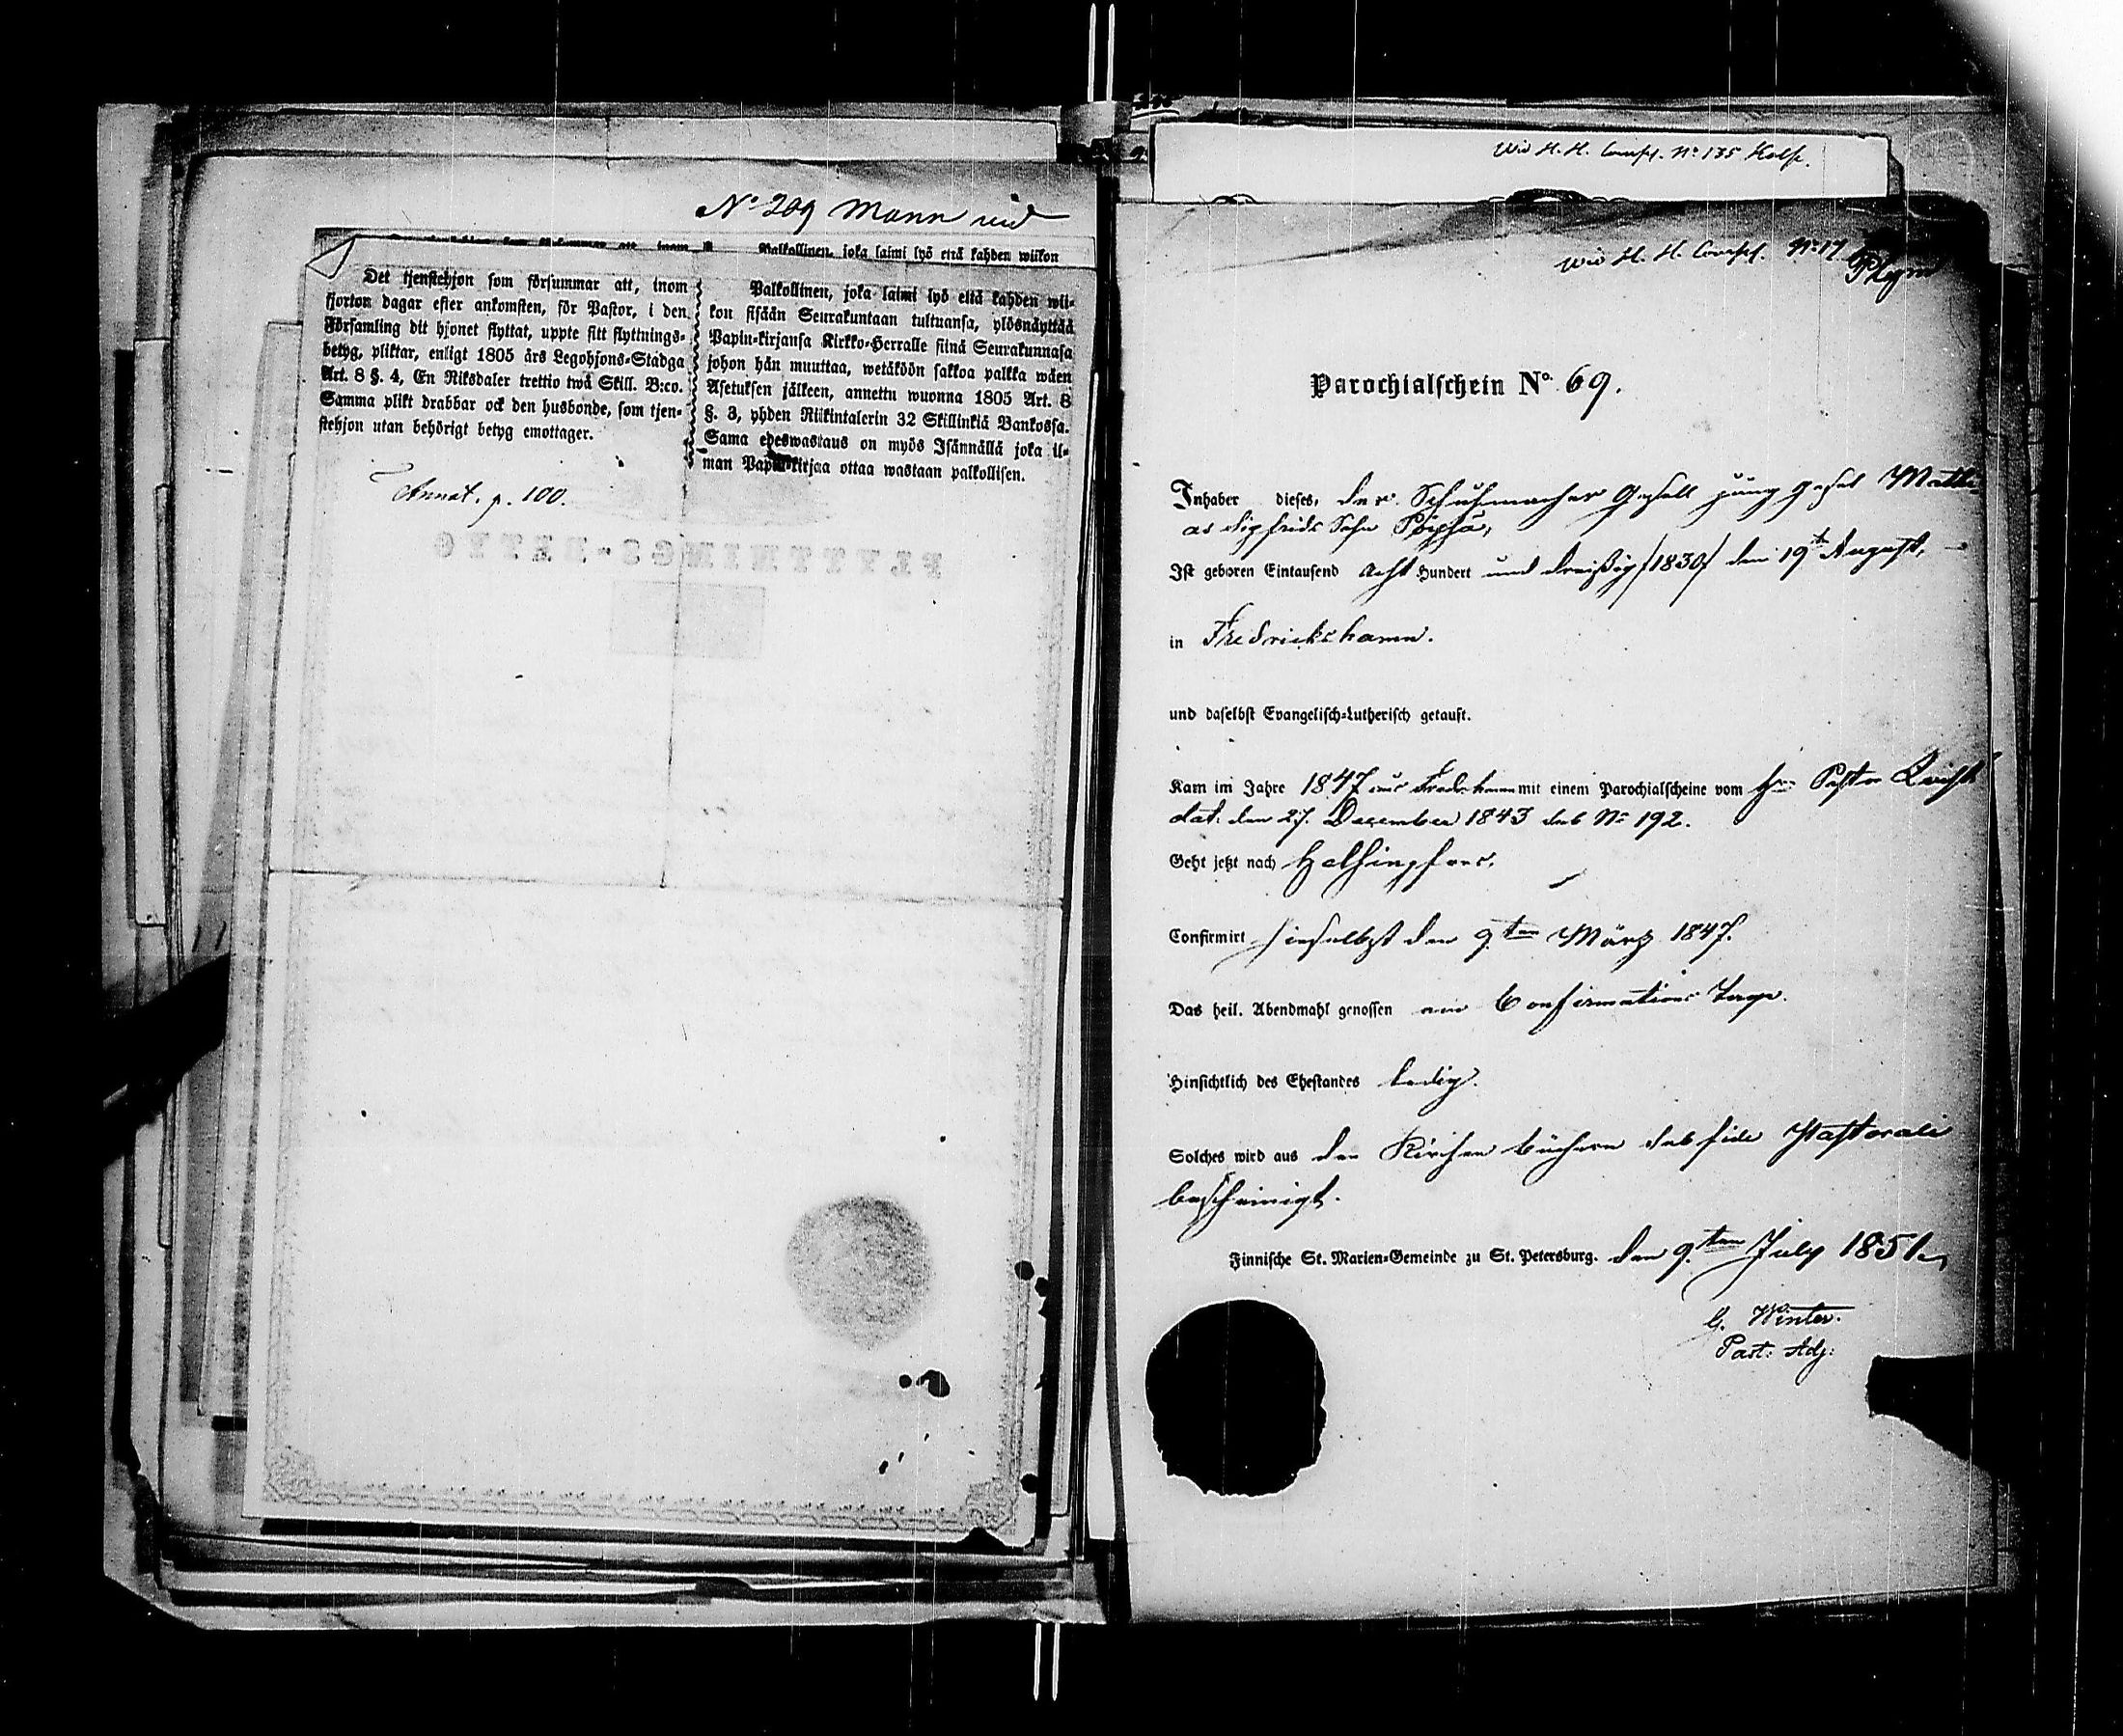 No 209 Mann vid
Palkollinen, joka laimi lyö että kahden wiikon
Det tjenstehjon som försummar att, inom
fjorton dagar efter ankomsten, för Pastor, i den
Församling dit hjonet flyttat, uppte sitt flyttnings-
betyg, pliktar, enligt 1805 års Legohjons-Stadga
Art. 8 §. 4, En Riksdaler trettio twå Skill. B:co.
Samma plikt drabbar ock den husbonde, som tjen-
stehjon utan behörigt betyg emottager.
Palkollinen, joka laimi lyö että kahden wii-
kon sisään Seurakuntaan tultuansa, ylösnäyttää
Papin-kirjansa Kirkko-Herralle siinä Seurakunnasa
johon hän muuttaa, wetäköön sakkoa palkka wäen
Asetuksen jälkeen, annettu wuonna 1805 Art. 8
§. 3, yhden Riikintalerin 32 Skillinkiä Bankossa.
Sama edeswastaus on myös Isännällä joka il-
man Papin-kirjaa ottaa wastaan palkollisen.
Annot. p. 100.
FLYTTNINGS-BETYG
wid H. H. No 135 Helf.
wid H. H. No 17
Parochialschein No 69.
Inhaber dieses, der Schuhmacher Gesell jung gesel Matthi-
as Sigfrids Sohn
Ist geboren Eintausend acht Hundert und dreißig /1830/ den 19t August,
in Fredrickshamn.
und daselbst Evangelisch-Lutherisch getauft.
Kam im Jahre 1847 aus Fredr.hamn mit einem Parochialscheine vom Hrn Pastor
dat. den 27. December 1843 sub No 192.
Geht jetzt nach Helsingfors.
Confirmirt hieselbst den 9ten März 1847.
Das heil. Abendmahl genossen am Confirmations Tage.
Hinsichtlich des Ehestandes ledig.
Solches wird aus den Kirchen büchern sub fide Pastorali
bescheinigt.
Finnische St. Marien-Gemeinde zu St. Petersburg. den 9ten July 1851.
G. Winter.
Past: Adj: